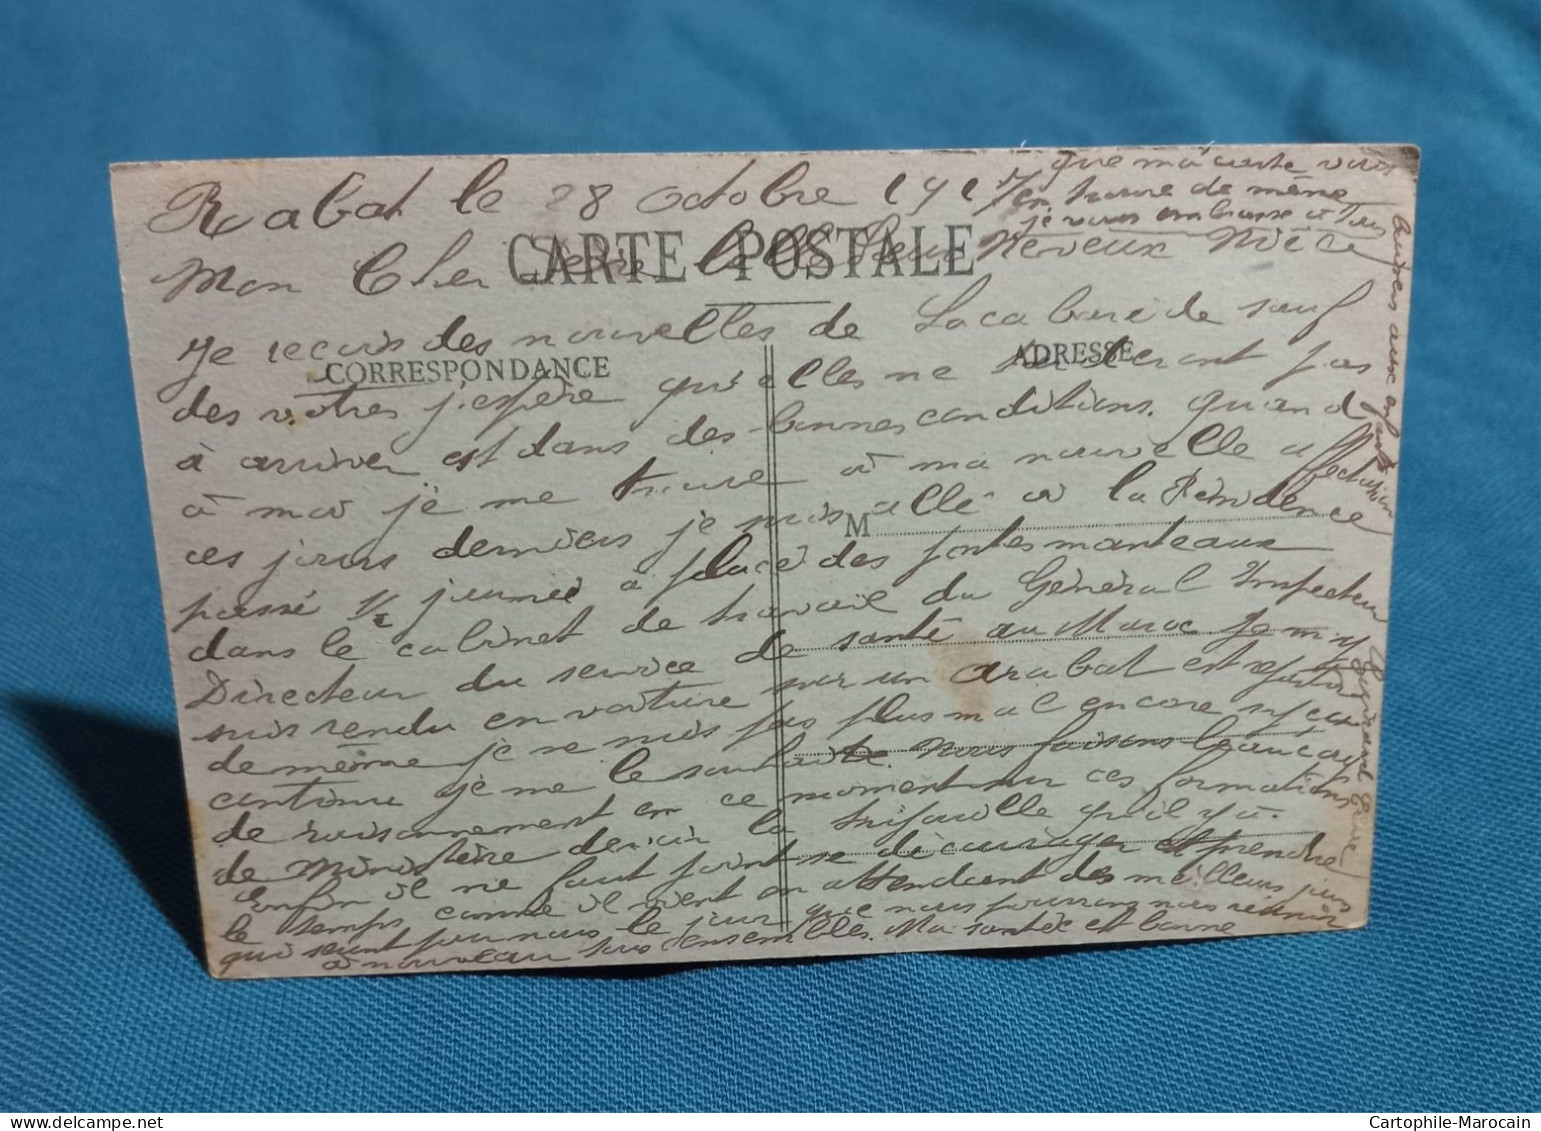 Rabat le 28 octobre 1917
Mon Cher Neveux Nièce
CARTE POSTALE
Je reçois des nouvelles de Lacabarède sauf
CORRESPONDANCE
ADRESSE
des votres j'espère qu'elles ne tarderont pas
à arriver et dans des bonnes conditions. quand
à moi je me trouve à ma nouvelle affectation
ces jours derniers je suis allé à la Résidence
M
passé ½ journée à placé des portes manteaux
dans le cabinet de travail du Général Inspecteur
Directeur du service de santé au Maroc je m'y
suis rendu en voiture sur un
de même je ne suis pas plus mal encore
continu je me le souhaite. Nous faisons beaucoup
de raisonnement en ce moment sur ces formations
de Ministère devoir la qu'il y a.
Enfin il ne faut point se décourager et prendre
le temps comme il vient en attendant des meilleurs jours
qui seront pour nous le jour que nous pourrons nous réunir
à nouveau tous ensembles. Ma santée est bonne
que ma carte vous
en trouve de même
je vous embrasse à tous